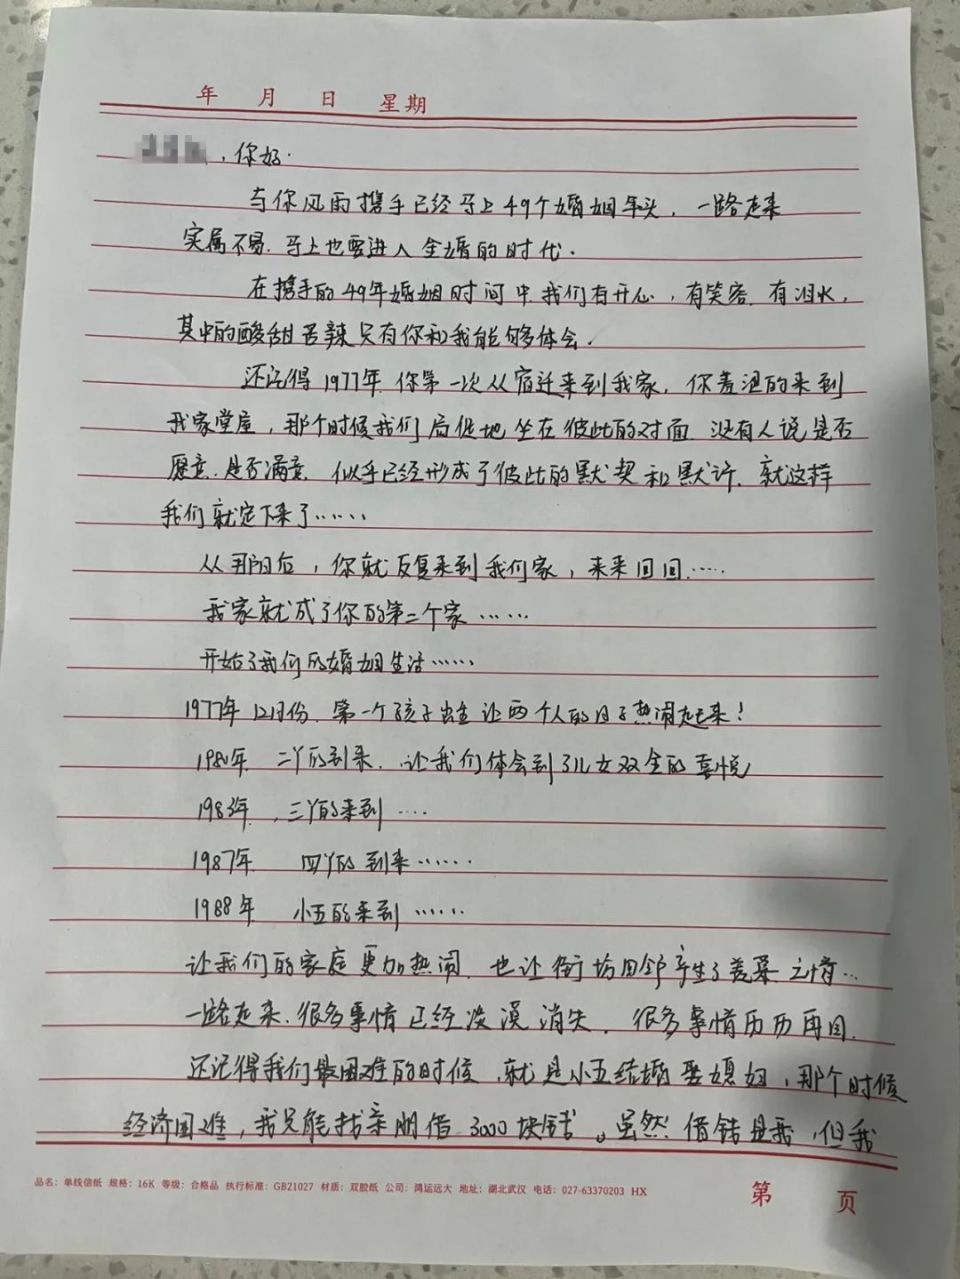 年 月 日 星期
，你好.
与你风雨携手已经马上49个婚姻年头，一路走来
实属不易.马上也要进入金婚的时代.
在携手的49年婚姻时间中我们有开心，有笑容.有泪水，
其中的酸甜苦辣只有你和我能够体会.
还记得1977年.你第一次从宿迁来到我家，你羞涩的来到
我家堂屋，那个时候我们局促地坐在彼此的对面.没有人说是否
愿意.是否满意.似乎已经形成了彼此的默契和默许.就这样
我们就定下来了……
从那以后，你就反复来到我们家，来来回回……
我家就成了你的第二个家……
开始了我们的婚姻生活……
1977年12月份.第一个孩子出生让两个人的日子热闹起来！
1980年 二丫的到来.让我们体会到了儿女双全的喜悦
1983年.，三丫的来到……
1987年 四丫的到来……
1988年 小五的来到……
让我们的家庭更加热闹.也让街坊四邻产生了羡慕之情…
一路走来.很多事情已经淡漠消失.很多事情历历再目.
还记得我们最困难的时候.就是小五结婚娶媳妇，那个时候
经济困难，我只能找亲朋借3000块钱。虽然借钱是我，但我
品名：单线信纸 规格：16K 等级：合格品 执行标准：GB21027 材质：双胶纸 公司：鸿运远大 地址：湖北武汉 电话：027-63370203 HX
第 页